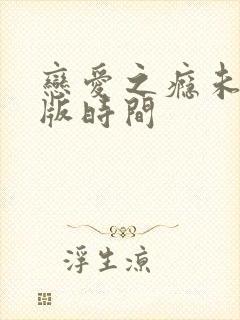 戀愛之癮未
版時間
浮生涼